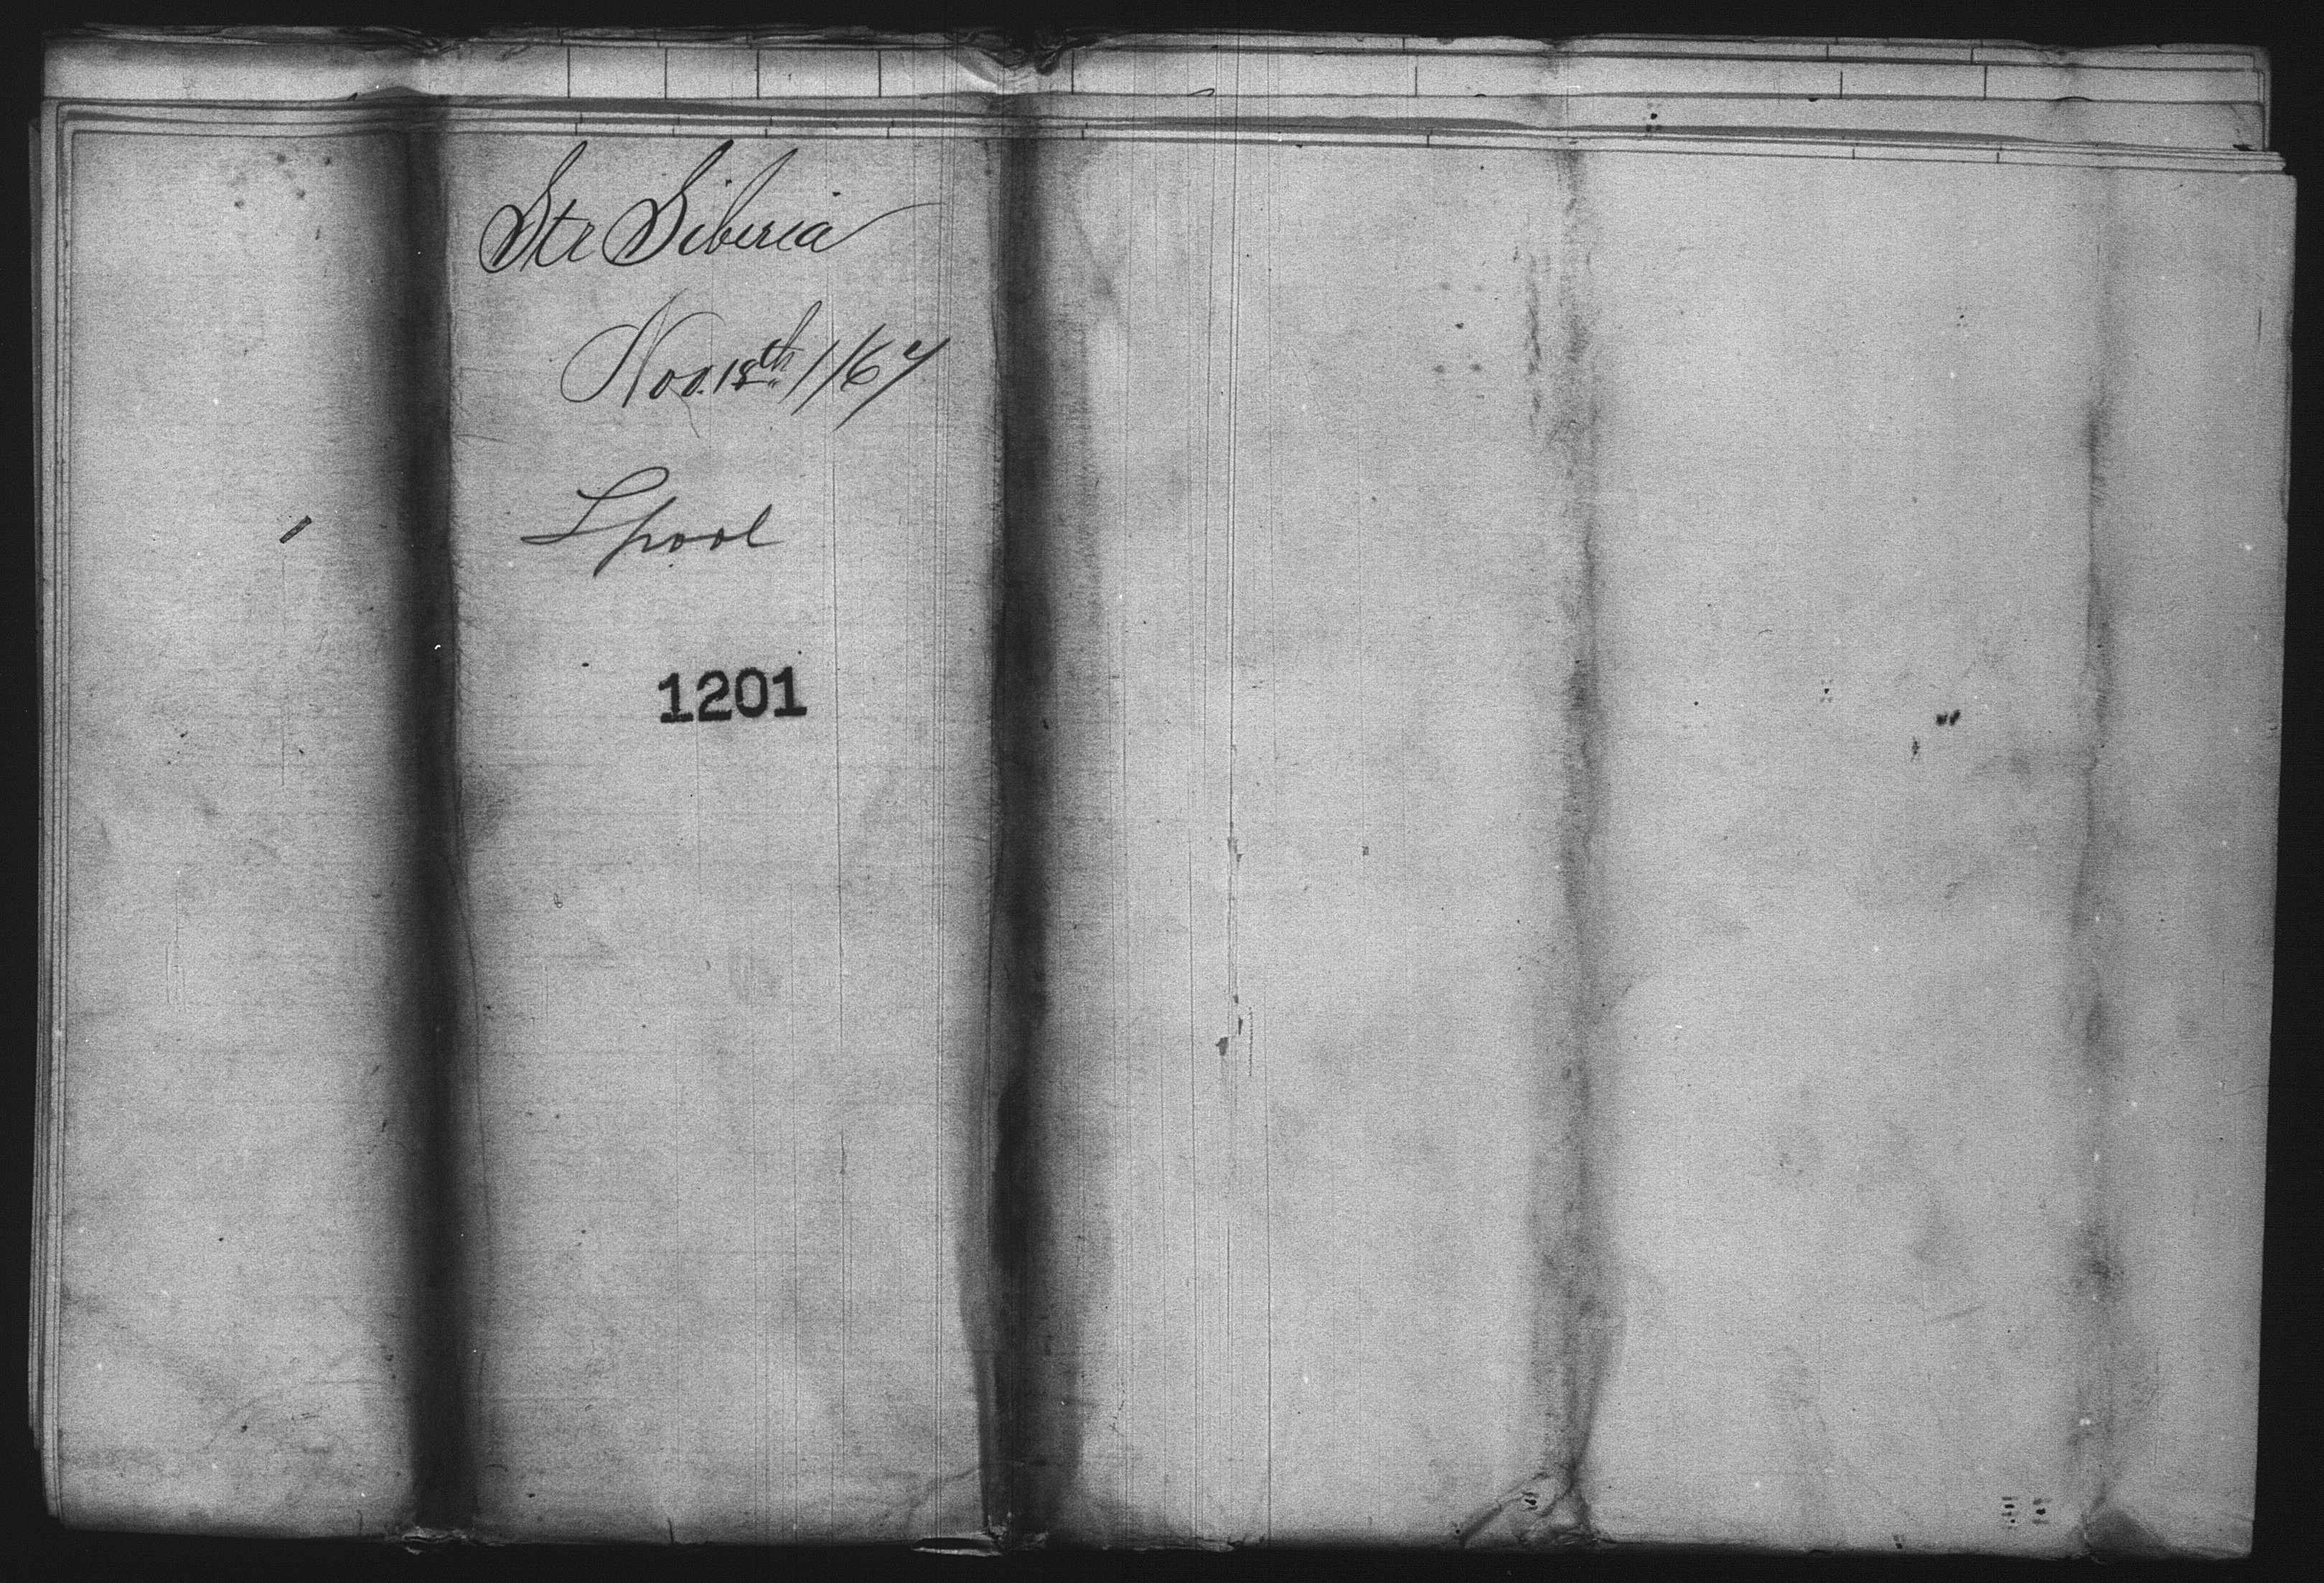 Str Siberia
Nov. 18th 1/67
Lpool
1201